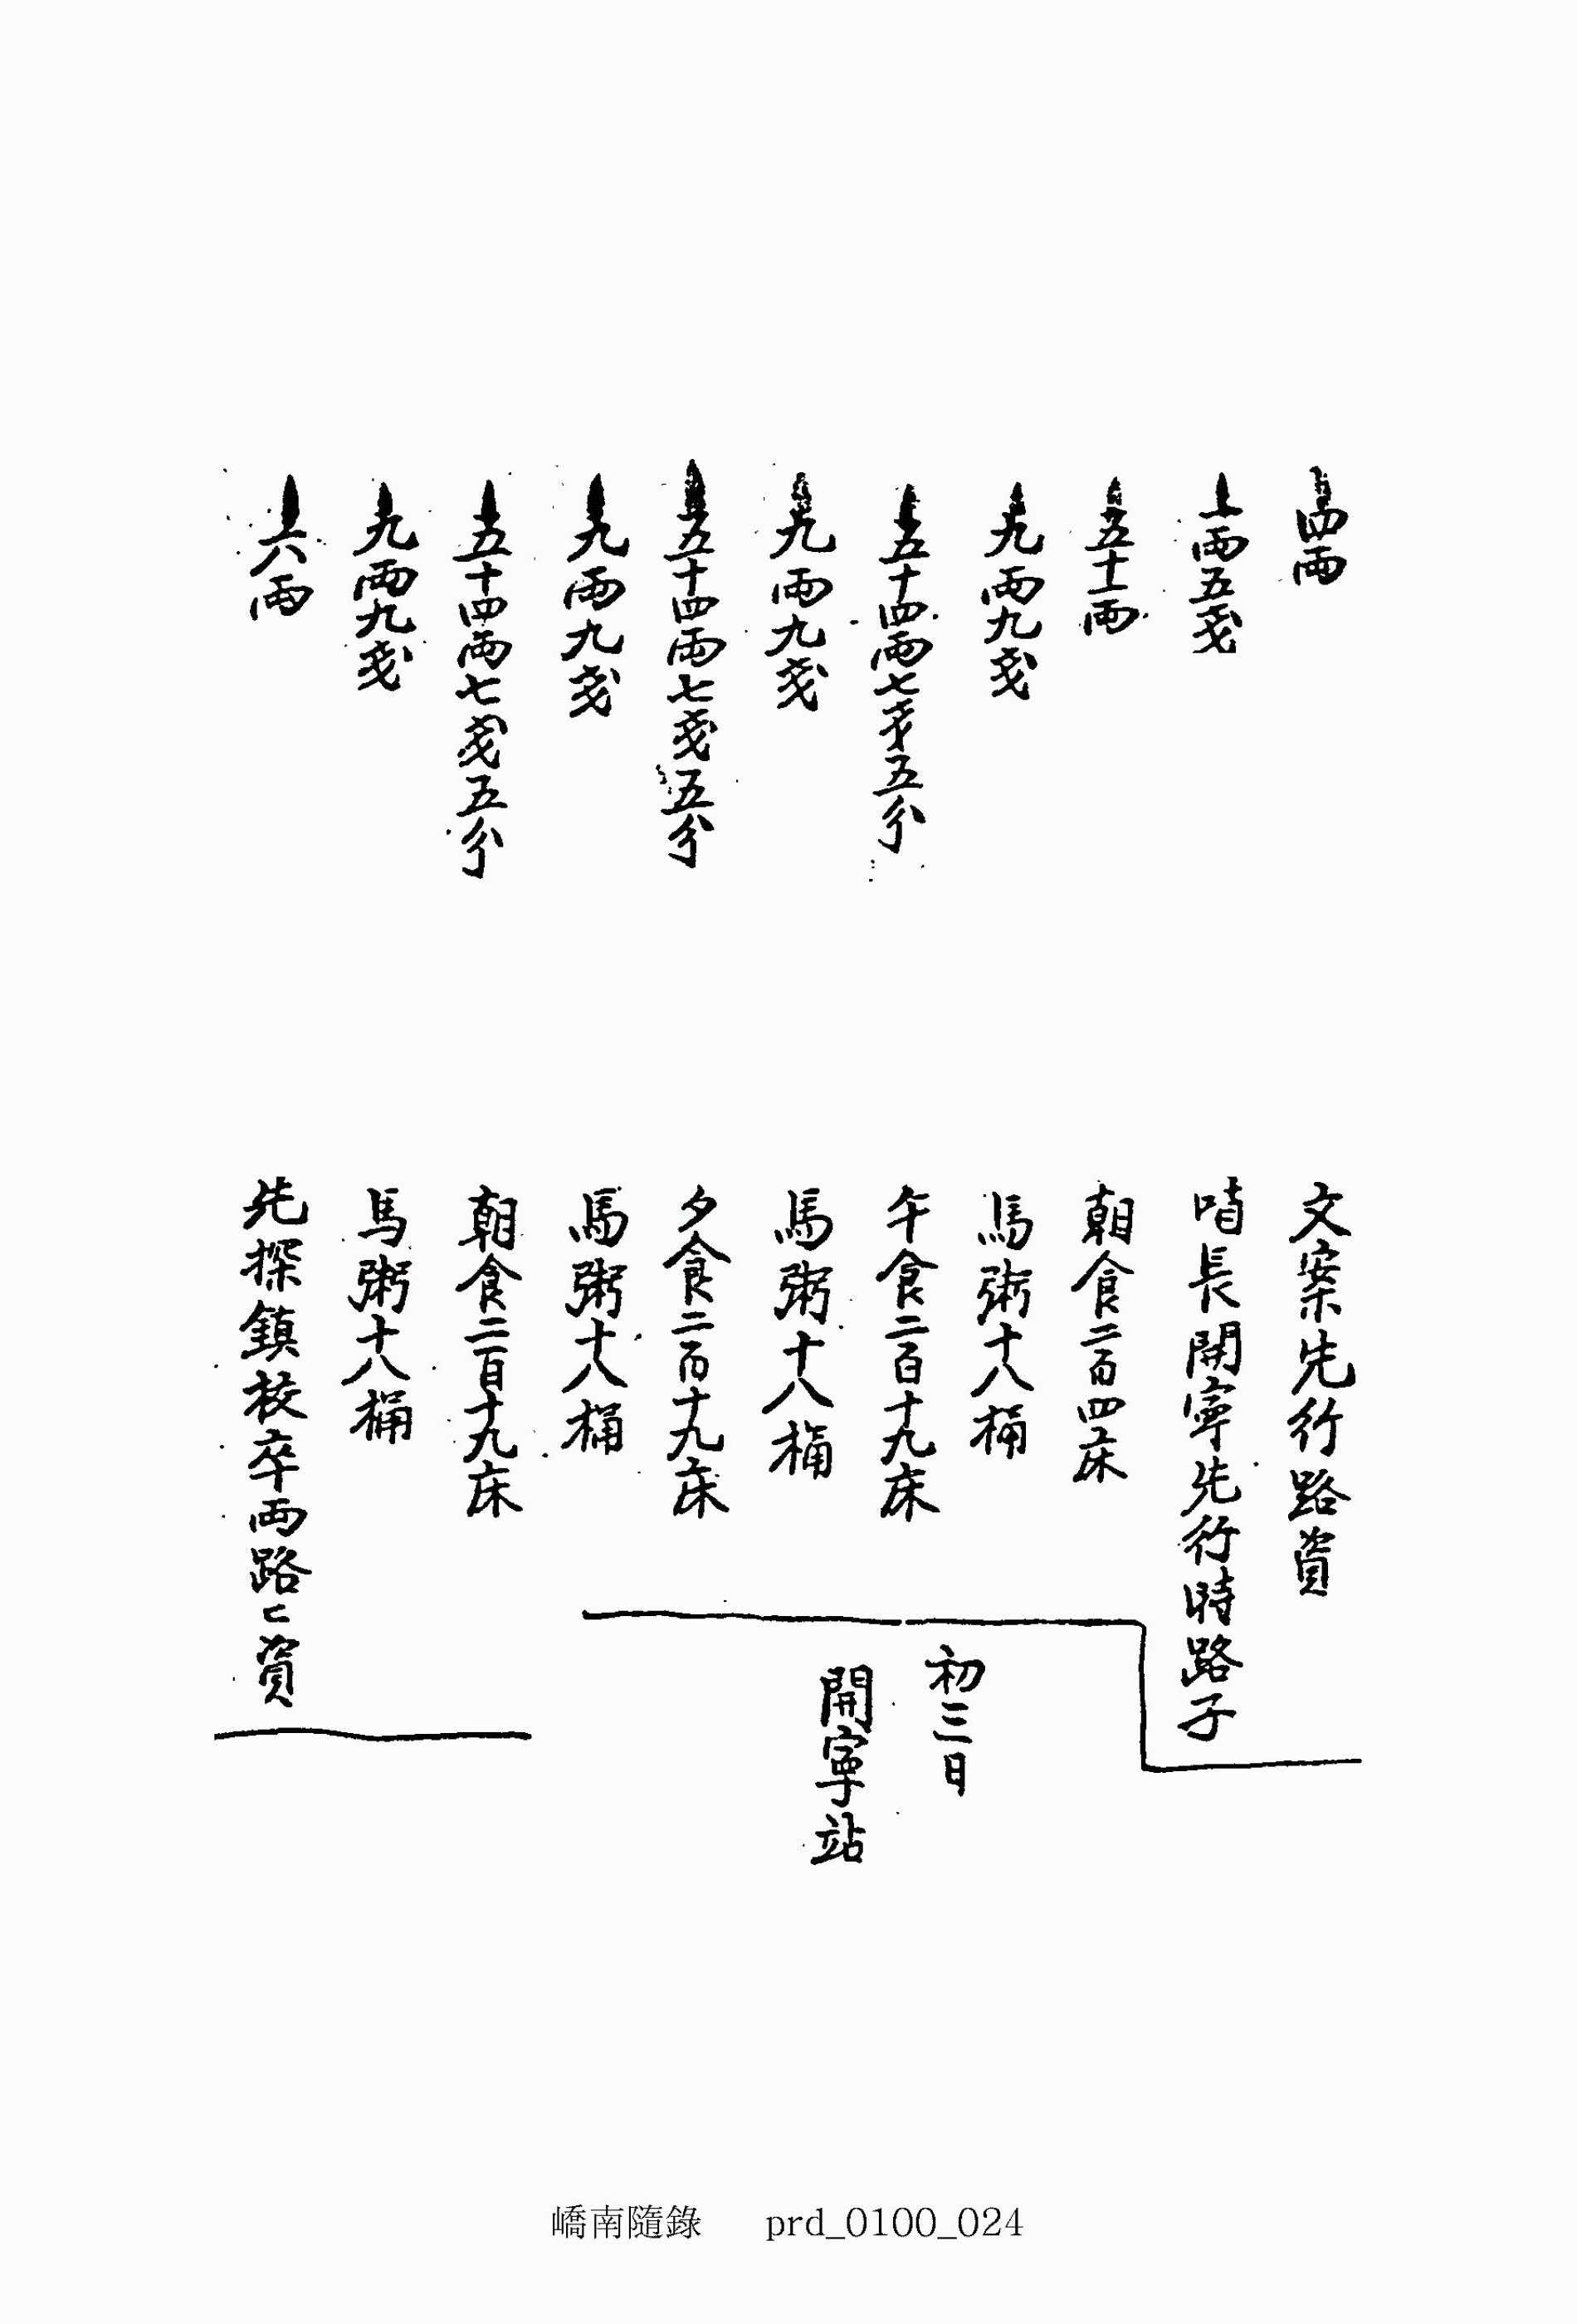 四兩 文案先行路資
一兩五戔 哨長開寧先行時路子
五十一兩 朝食二百四床
九兩九戔 馬粥十八桶
五十四兩七戔五分 午食二百十九床
九兩九戔 馬粥十八桶
五十四兩七戔五分 夕食二百十九床
九兩九戔 馬粥十八桶
初三日
開寧站
五十四兩七戔五分 朝食二百十九床
九兩九戔 馬粥十八桶
六兩 先探鎭校卒兩路〻資
嶠南隨錄 prd_0100_024